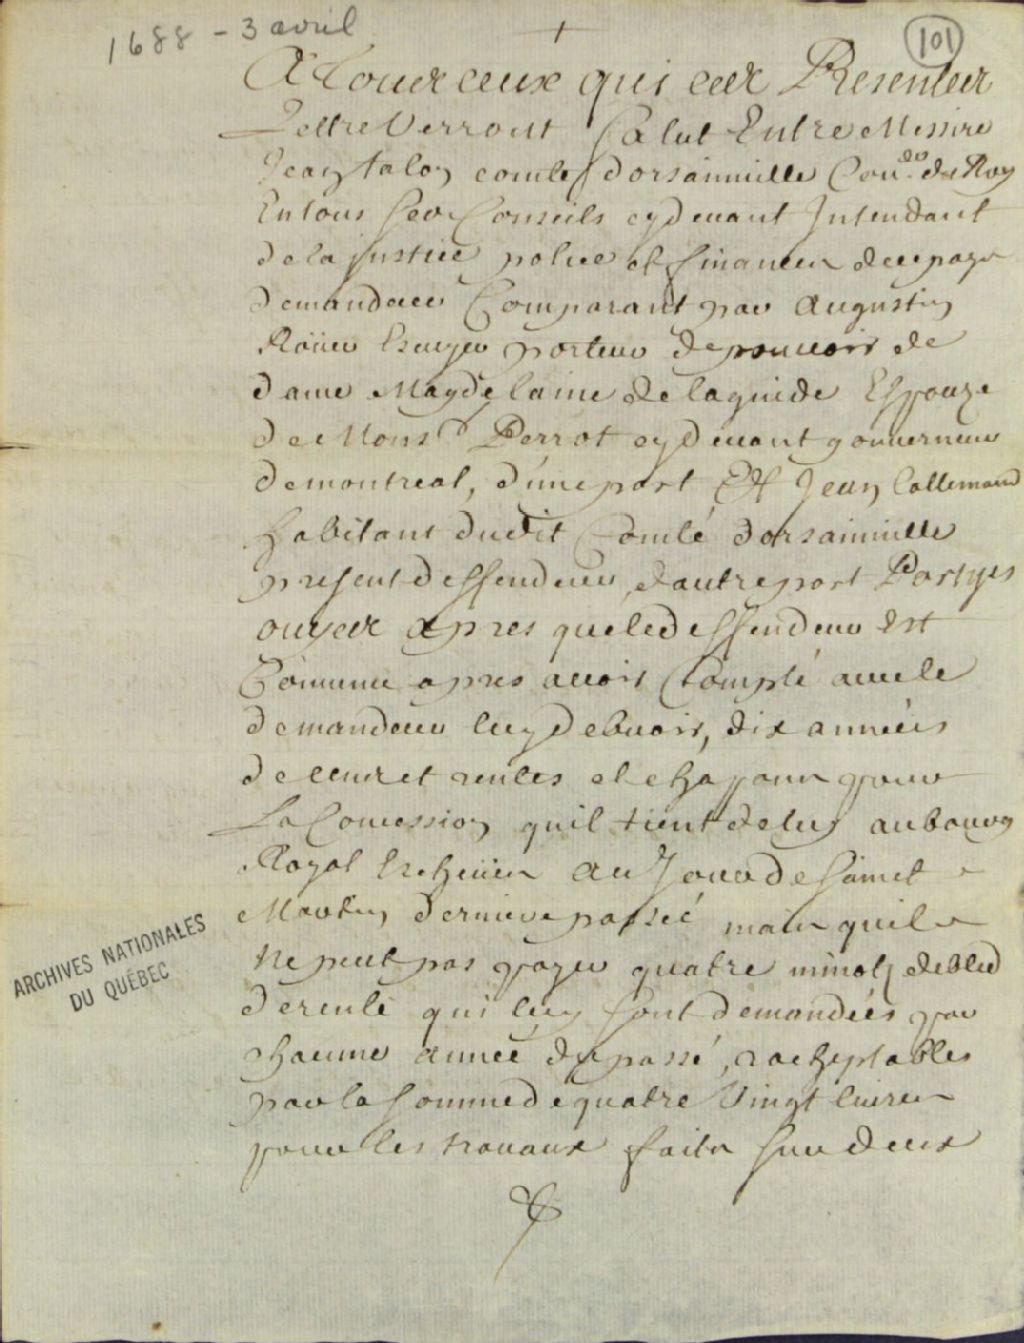 1688 - 3 avril
101
A Tous ceux qui ces Presentes
Lettre Verront Salut Entre Messire
Jean talon comte dorsainuille Con.er du Roy
En tous Ses Conseils cydeuant Intendant
de la justice police et finances de ce pays
demandeur Comparant par Augustin
Roüer Escuyer porteur de pouuoir de
dame Magdelaine de laguide Espouze
de Mons.r Perrot cydeuant gouuerneur
de montreal, d'une part Et Jean Lallemand
habitant dudit Comté dorsainuille
present deffendeur, d'autre part Partyes
ouyes apres que le deffendeur Est
Conuenu apres auoir Compté auec le
demandeur luy debuoir, dix années
de cens et rentes et chapons pour
La Concession qu'il tient de luy au bourg
Royal Escheües au Jour de Sainct
Martin derniere passé mais quil
ne peut pas payer quatre minotz de bled
de rente qui luy sont demandées par
chacune année du passé, racheptables
par la somme de quatre Vingt liures
pour les trauaux faits sur deux
ARCHIVES NATIONALES
DU QUÉBEC